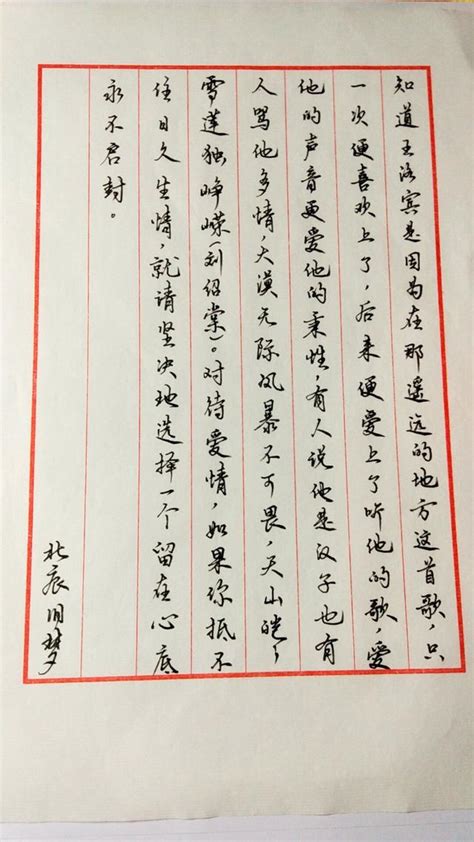 知道王洛宾是因为在那遥远的地方这首歌，只
一次便喜欢上了，后来便爱上了听他的歌，爱
他的声音更爱他的秉性，有人说他是汉子也有
人骂他多情，大漠无际风暴不可畏，天山皑々
雪莲独峥嵘（刘绍棠）。对待爱情，如果你抵不
住日久生情，就请坚决地选择一个留在心底
永不启封。
北辰旧梦